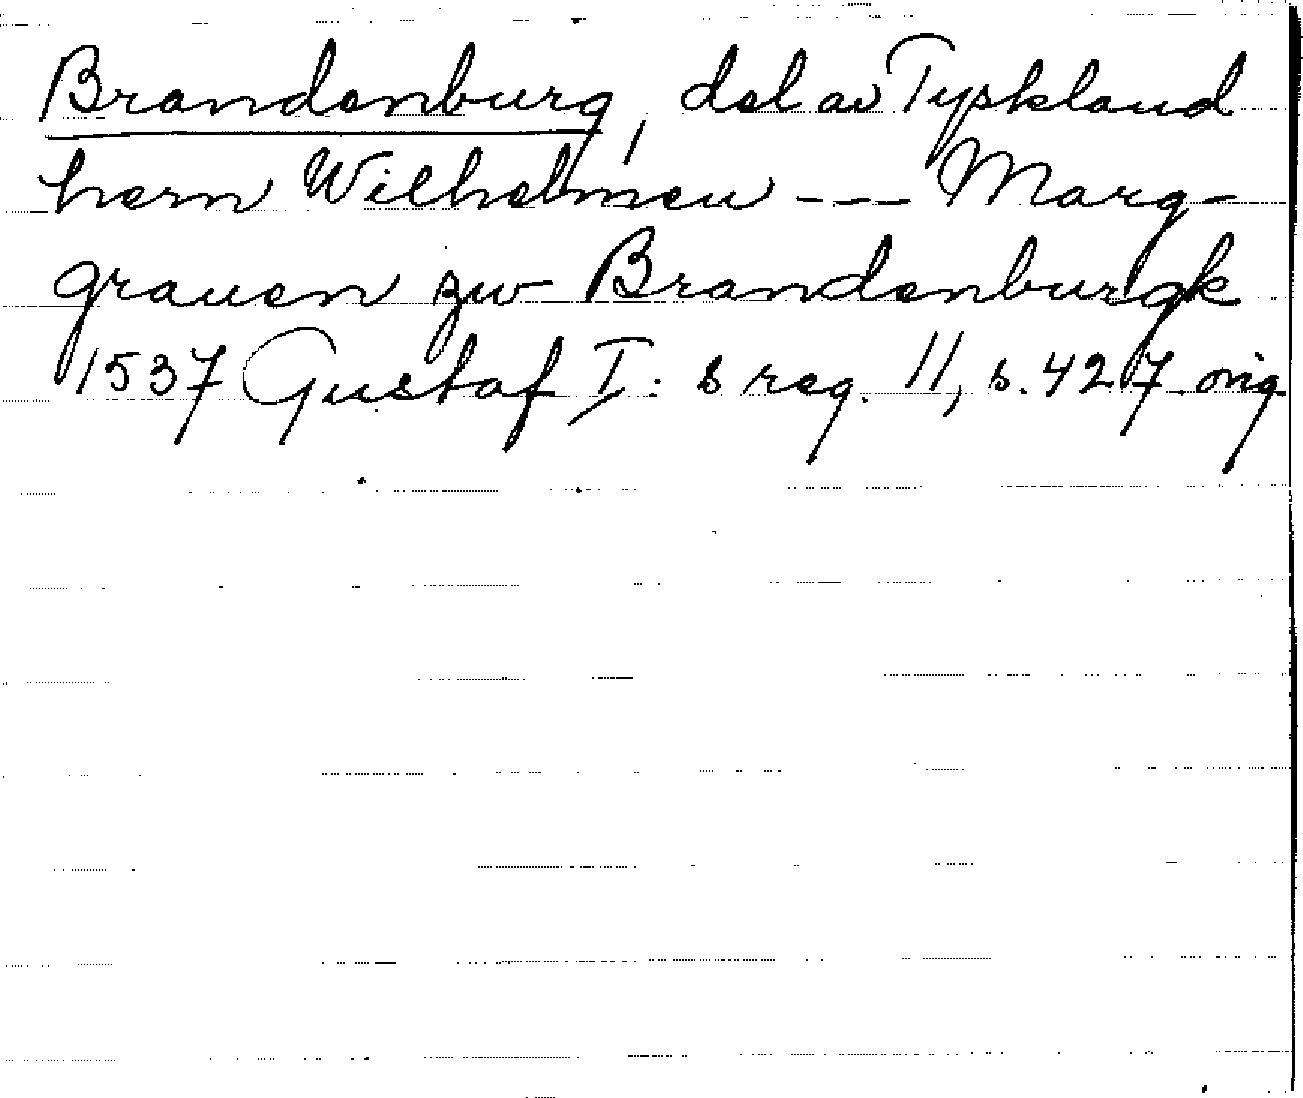 Brandenburg, del av Tyskland
hern Wilhelmen --- Marg-
grauen zw Brandenburgk
1537 Gustaf I:s reg. 11, s. 427. orig